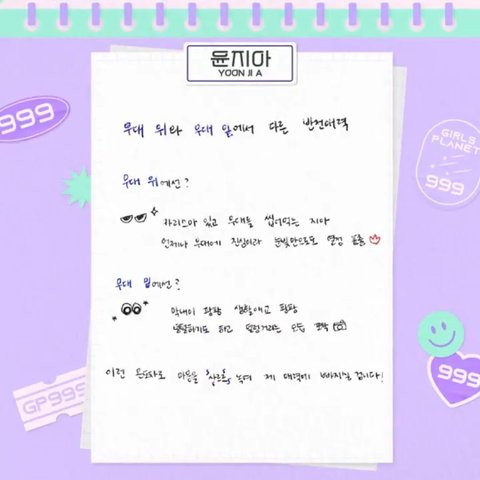 윤지아
YOON JI A
999
무대 위와 무대 밑에서 다른 반전매력
GIRLS PLANET
999
무대 위에선?
카리스마 있고 무대를 씹어먹는 지아
언제나 무대에 진심이라 눈빛만으로도 열정 뿜뿜
무대 밑에선?
막내미 팡팡 생활애교 팡팡
덜렁거리는 모습
이런 마음을 사르르 녹여 제 매력에 빠지실 겁니다!
GP999
999